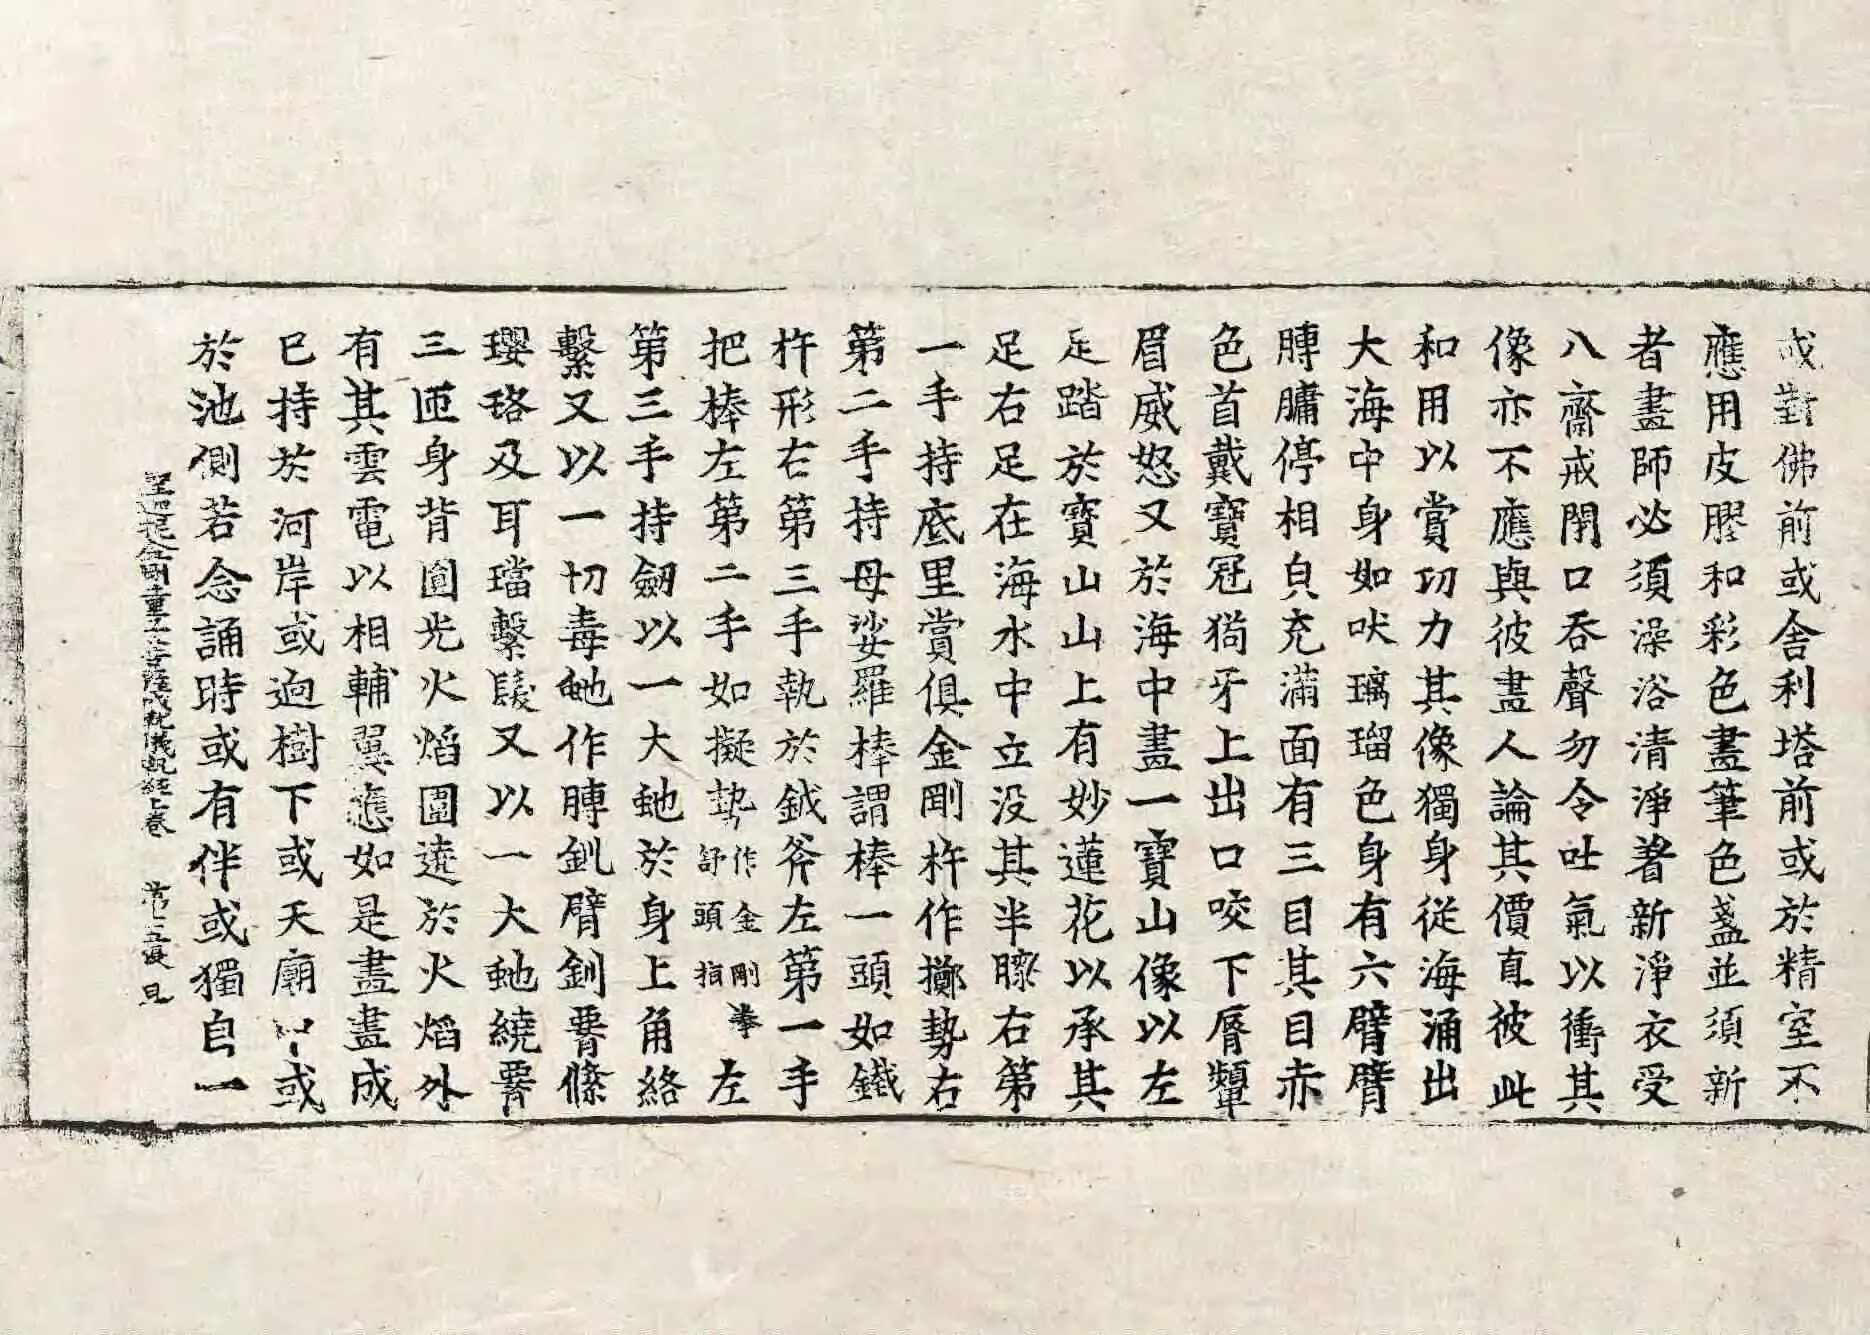 或對佛前或舍利塔前或於精室不
應用皮膠和彩色畫筆色盞並須新
者畫師必須澡浴清淨著新淨衣受
八齋戒閇口吞聲勿令吐氣以衝其
像亦不應與彼畫人論其價直彼此
和用以賞功力其像獨身從海涌出
大海中身如吠璃瑠色身有六臂臂
膊𦟛停相皃充滿面有三目其目赤
色首戴寶冠猗牙上出口咬下脣顰
眉威怒又於海中畫一寶山像以左
足踏於寶山山上有妙蓮花以承其
足右足在海水中立没其半膝右第
一手持底里賞俱金剛杵作擲勢右
第二手持母娑羅棒謂棒一頭如鐵
杵形右第三手執於鉞斧左第一手
把棒左第二手如擬勢作金剛拳舒頭指左
第三手持劒以一大虵於身上角絡
繫又以一切毒虵作膊釧臂釧䙅絛
瓔珞及耳璫繫髮又以一大虵繞䙅
三匝身背圓光火焰圍遶於火焰外
有其雲電以相輔翼應如是畫畫成
已持於河岸或逈樹下或天廟中或
於池側若念誦時或有伴或獨自一
聖迦抳金剛童子菩薩成就儀軌經上卷　第十五張 見